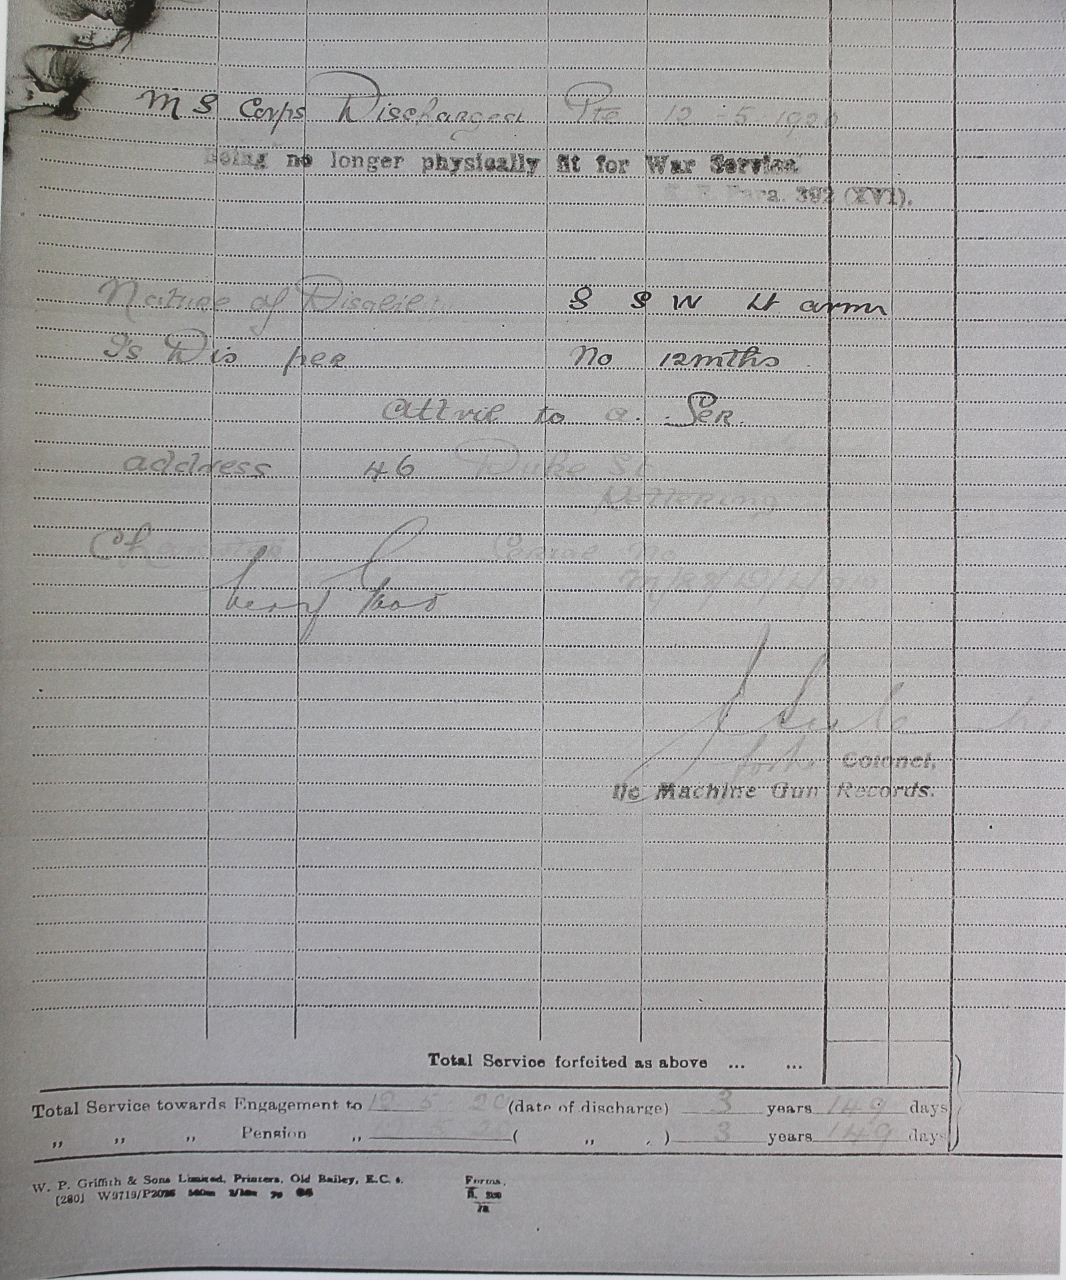 M G Corps Discharged Pte 12-5-1920
Being no longer physically fit for War Service
K. R. Para. 392 (XVI).
Nature of Disabil G S W Lt arm
Is Dis per No 12 mths
Attrib to a. Ser.
address 46 Duke St
Kettering
Character Serial No
Very Good
for Colonel,
i/c Machine Gun Records.
Total Service forfeited as above ... ...
Total Service towards Engagement to 12 5 20 (date of discharge) 3 years 149 days
,, ,, ,, Pension ,, 12 5 20 ( ,, , ) 3 years 149 days
W. P. Griffith & Sons Limited, Printers, Old Bailey, E.C. 4. Forms,
[280] W9719/P2025